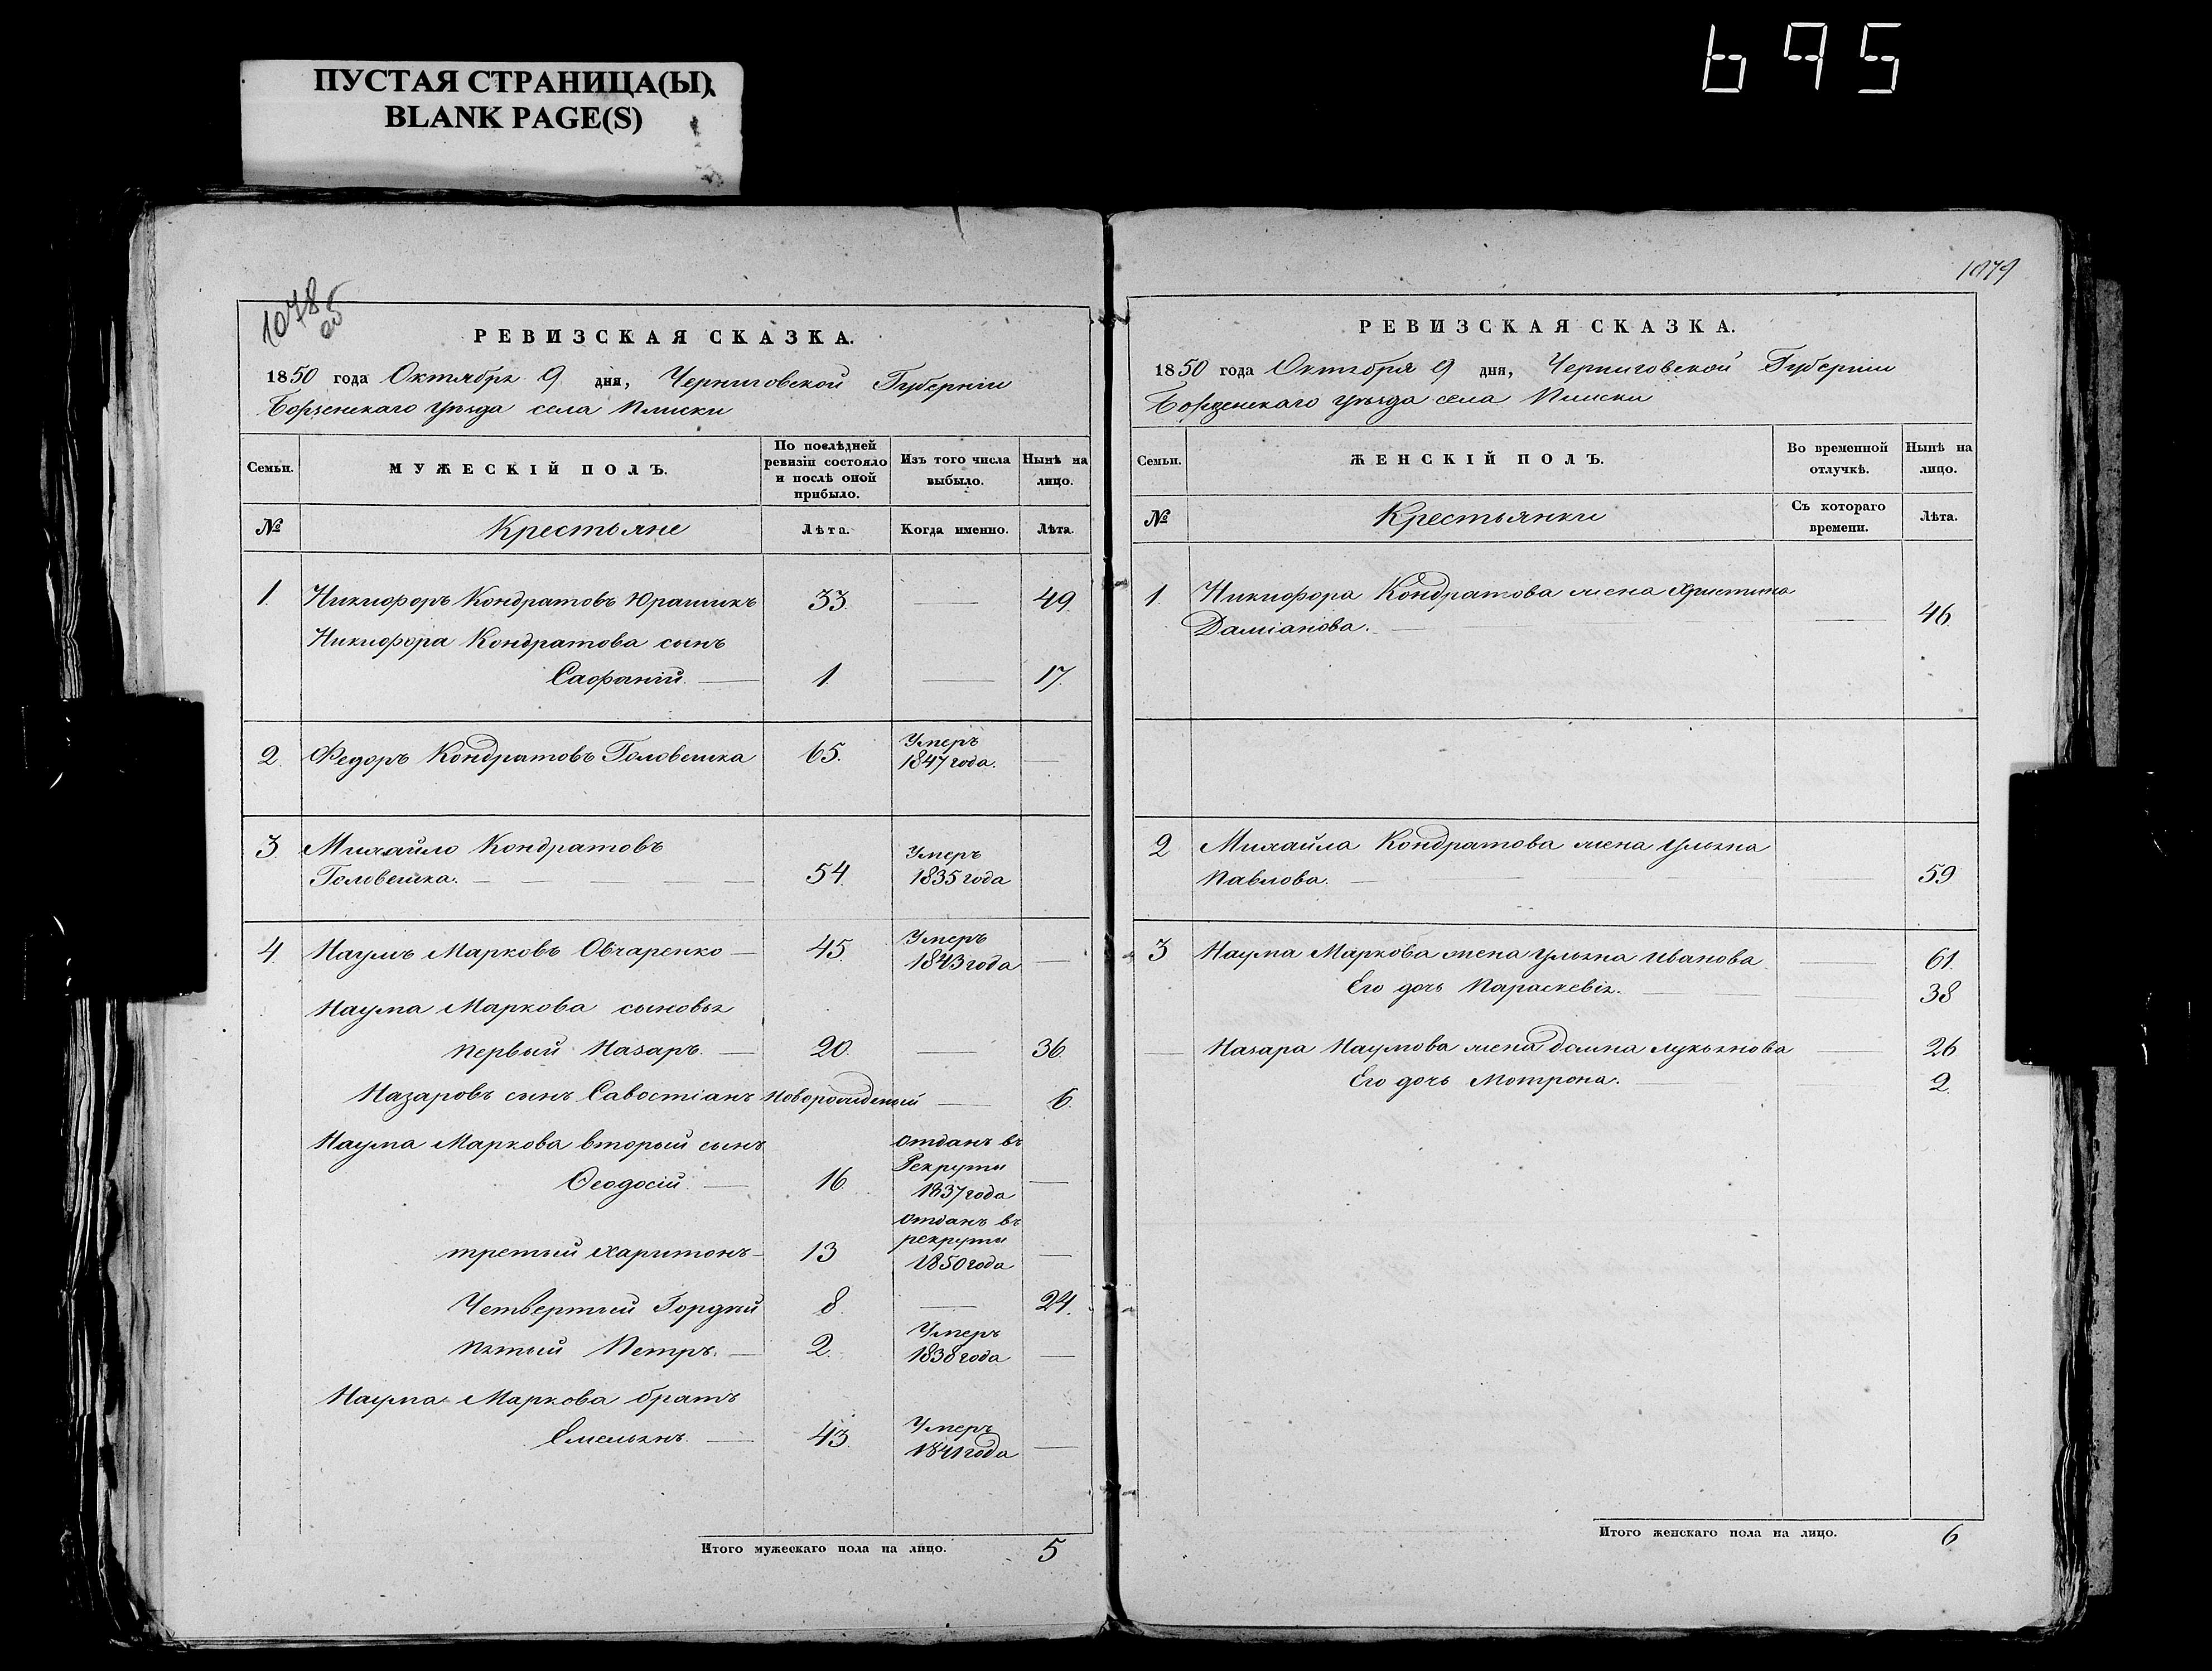 695
ПУСТАЯ СТРАНИЦА(Ы)
BLANK PAGE(S)
1078
об
РЕВИЗСКАЯ СКАЗКА.
1850 года Октября 9 дня, Черниговской Губерніи
Борзенскаго уѣзда села Плиски
Семьи.
МУЖЕСКІЙ ПОЛЪ.
По послѣдней ревизіи состояло и послѣ оной прибыло.
Изъ того числа выбыло.
Нынѣ на лицо.
№
Крестьяне
Лѣта.
Когда именно.
Лѣта.
1. Никифоръ Кондратовъ Юрашикъ 33. — 49.
Никифора Кондратова сынъ
Сафаній. — 1. — 17.
2. Федоръ Кондратовъ Головешка 65. Умеръ 1847 года. —
3. Михайло Кондратовъ
Головешка. — 54. Умеръ 1835 года
4. Наумъ Марковъ Овчаренко — 45. Умеръ 1843 года —
Наума Маркова сыновья
первый Назаръ. — 20. — 36.
Назаровъ сынъ Савостіанъ Новорожденый — 6.
Наума Маркова вторый сынъ
Ѳеодосій — 16 отданъ въ Рекруты 1837 года —
третій Харитонъ — 13 отданъ въ рекруты 1850 года —
Четвертый Гордѣй 8. — 24.
пятый Петръ. — 2. Умеръ 1838 года —
Наума Маркова братъ
Емельянъ. — 43. Умеръ 1841 года —
Итого мужескаго пола на лицо. 5
1079
РЕВИЗСКАЯ СКАЗКА.
1850 года Октября 9 дня, Черниговской Губерніи
Борзенскаго уѣзда села Плиски
Семьи.
ЖЕНСКІЙ ПОЛЪ.
Во временной отлучкѣ.
Нынѣ на лицо.
№
Крестьянки
Съ котораго времени.
Лѣта.
1. Никифора Кондратова жена Христина
Даміанова. — — 46.
2 Михайла Кондратова жена Ульяна
Павлова. — — 59
3 Наума Маркова жена Ульяна Иванова — 61.
Его дочь Параскевія. — — 38
— Назара Наумова жена Домна Лукьянова — 26
Его дочь Мотрона. — 2.
Итого женскаго пола на лицо. 6